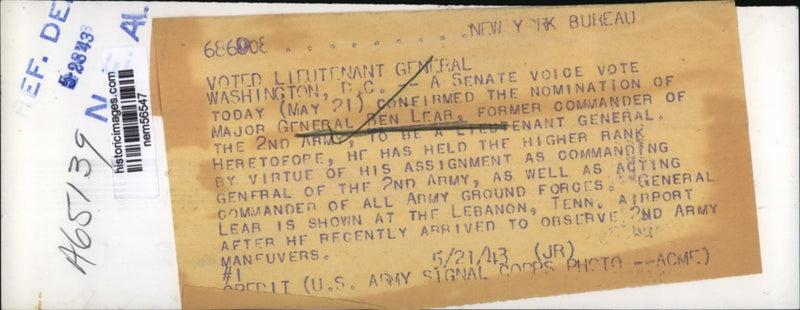 REF. DE
5-28-43
N
AL
A65139
historicimages.com
nem56547
686908 . . . . . . . . . NEW YORK BUREAU
VOTED LIEUTENANT GENERAL
WASHINGTON, D.C. -- A SENATE VOICE VOTE
TODAY (MAY 21) CONFIRMED THE NOMINATION OF
MAJOR GENERAL BEN LEAR, FORMER COMMANDER OF
THE 2ND ARMY, TO BE A LIEUTENANT GENERAL.
HERETOFORE, HE HAS HELD THE HIGHER RANK
BY VIRTUE OF HIS ASSIGNMENT AS COMMANDING
GENERAL OF THE 2ND ARMY, AS WELL AS ACTING
COMMANDER OF ALL ARMY GROUND FORCES. GENERAL
LEAR IS SHOWN AT THE LEBANON, TENN. AIRPORT
AFTER HE RECENTLY ARRIVED TO OBSERVE 2ND ARMY
MANEUVERS.
#1 5/21/43 (JR)
CREDIT (U.S. ARMY SIGNAL CORPS PHOTO --ACME)